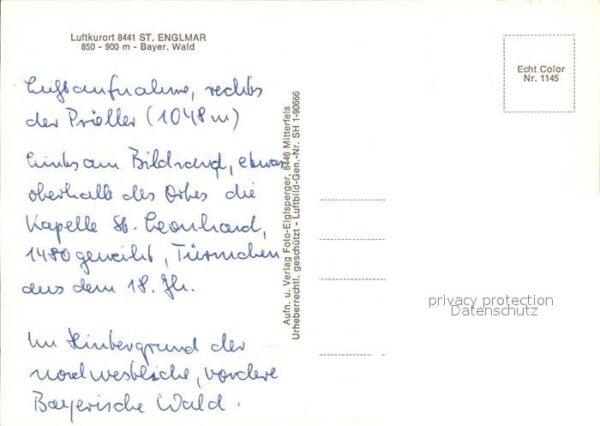 Luftkurort 8441 ST. ENGLMAR
850 - 900 m - Bayer. Wald
Luftaufnahme, rechts
der Pröller (1048 m)
Links am Bildrand, etwas
oberhalb des Ortes die
Kapelle St. Leonhard,
1480 geweiht, Türmchen
aus dem 18. Jh.
Im Hintergrund der
nordwestliche, vordere
Bayerische Wald.
Aufn. u. Verlag Foto-Eiglsperger, 8446 Mitterfels
Urheberrechtl. geschützt - Luftbild-Gen.-Nr. SH 1-90666
Echt Color
Nr. 1145
privacy protection
Datenschutz